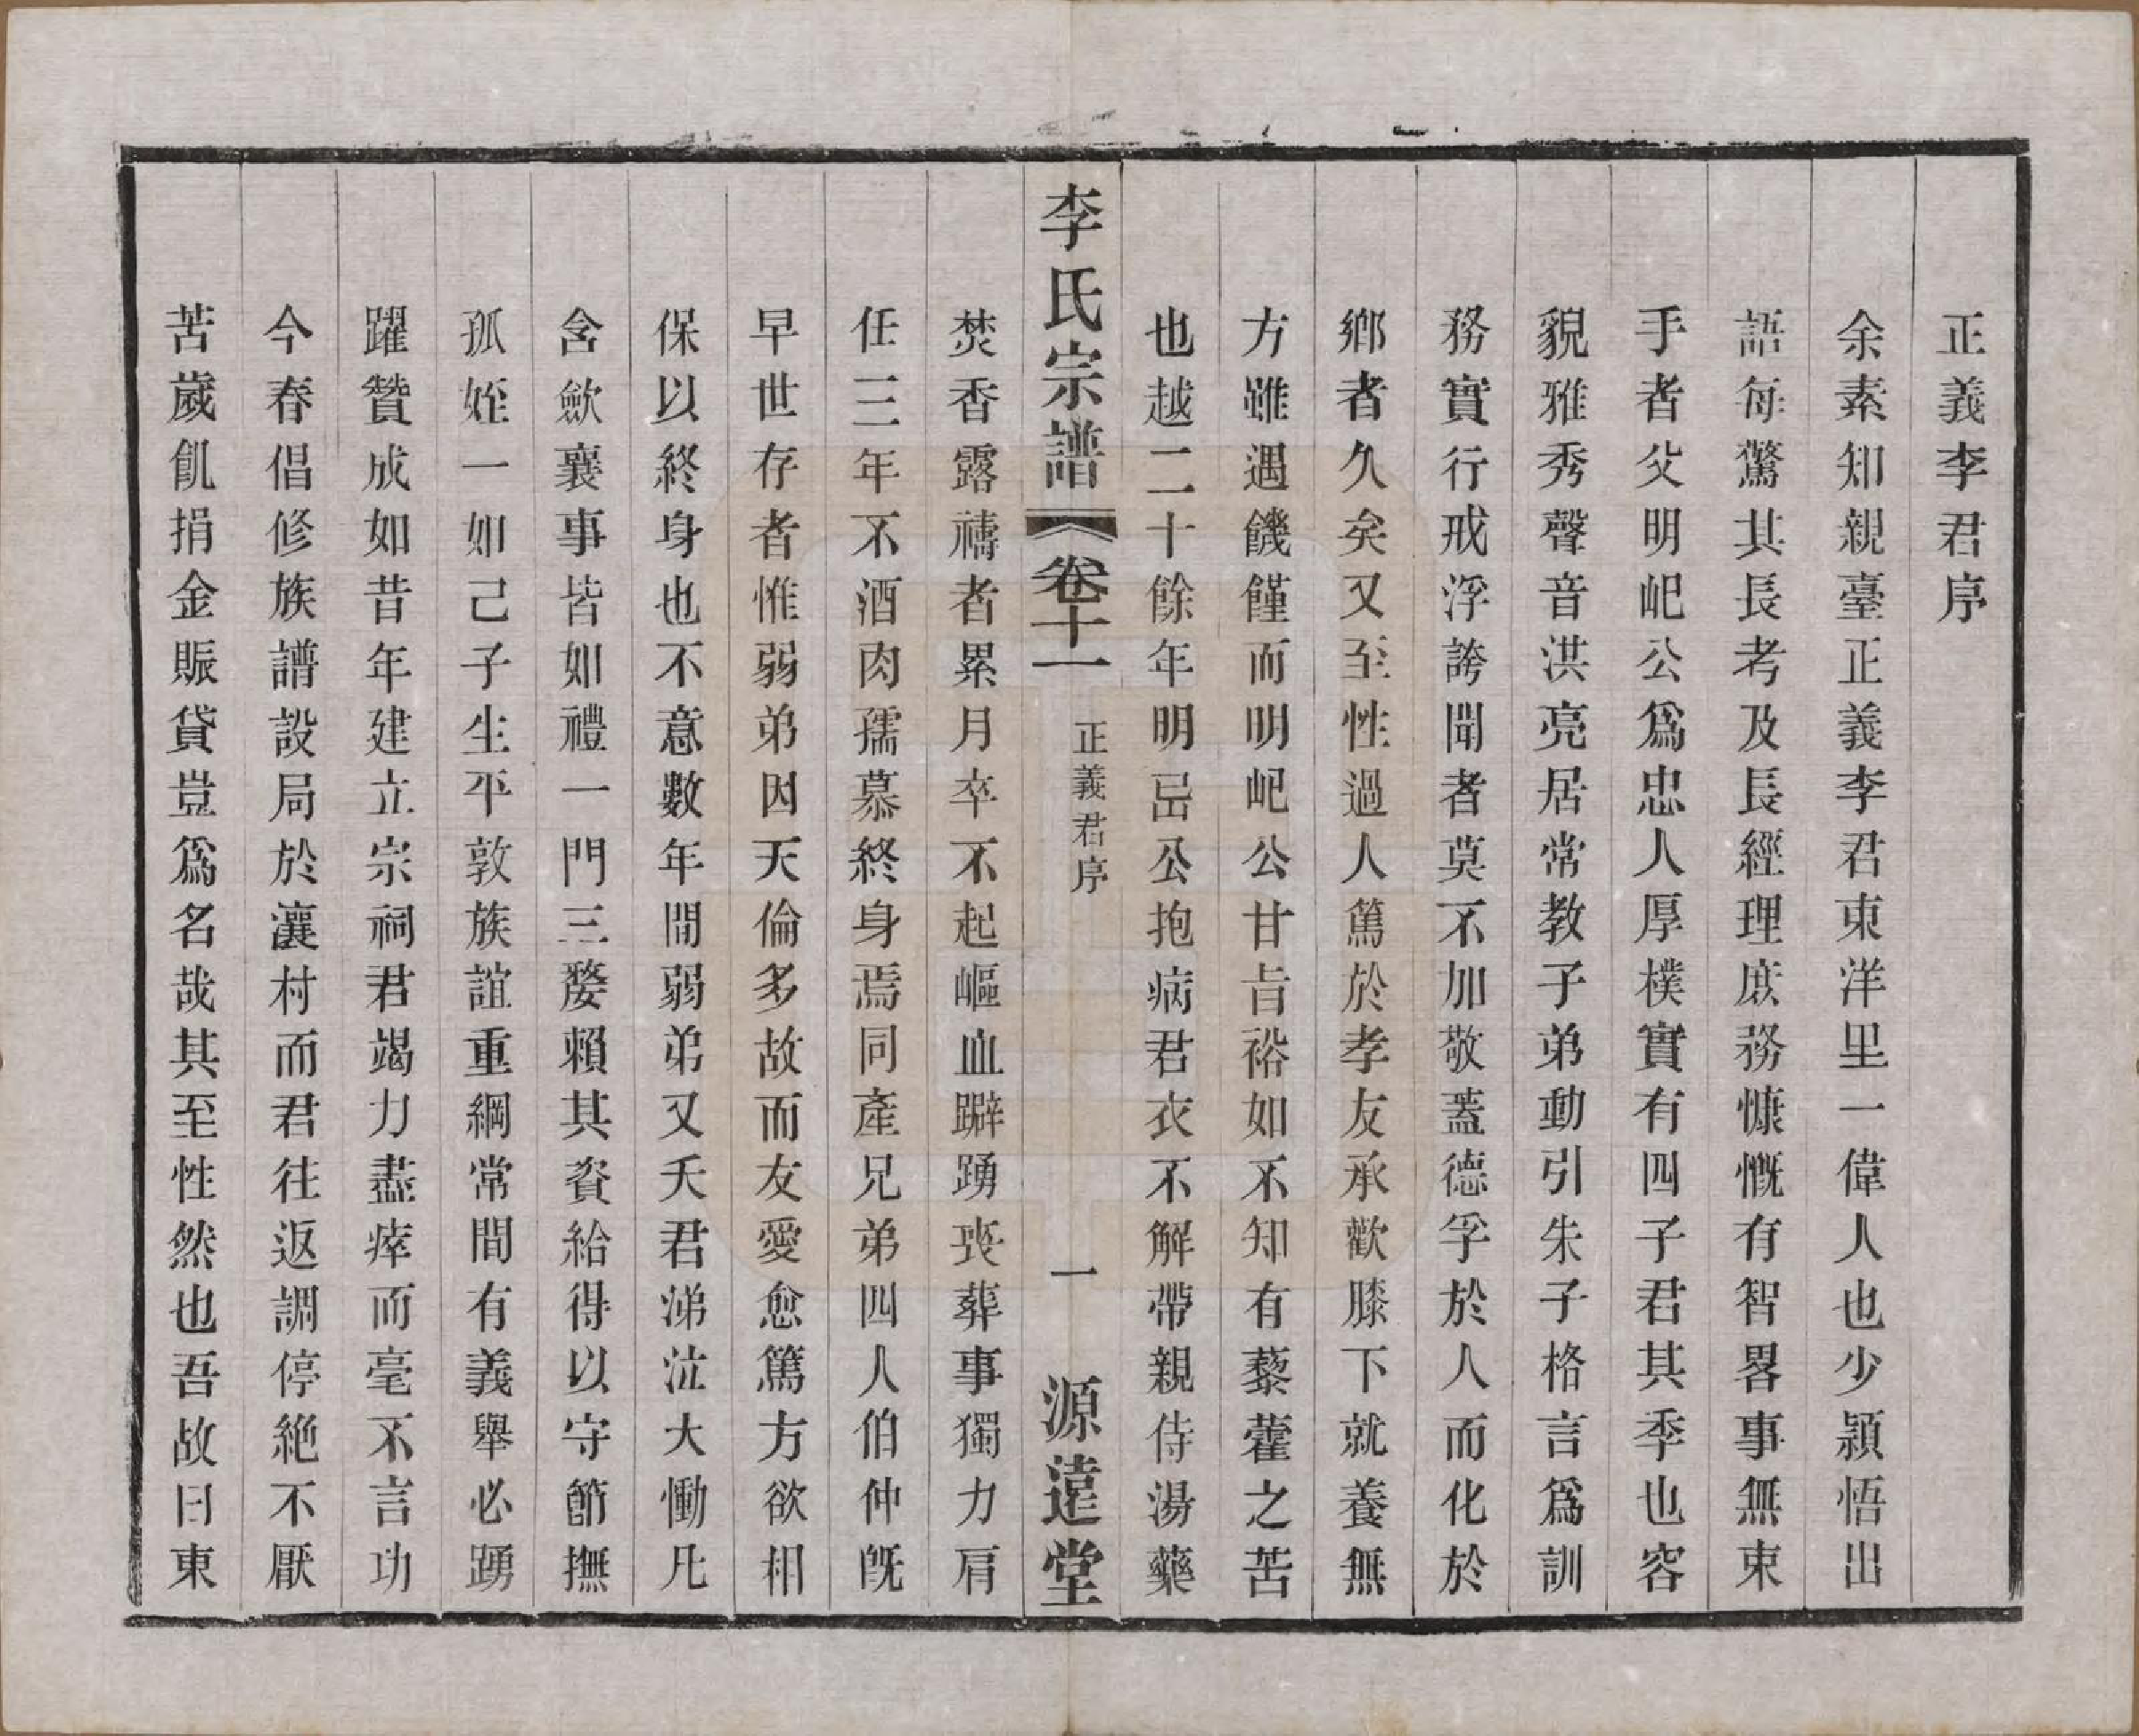 正義李君序
余素知親臺正義李君東洋里一偉人也少穎悟出
語每驚其長考及長經理庶務慷慨有智畧事無束
手者父明屺公爲忠人厚樸實有四子君其季也容
貌雅秀聲音洪亮居常教子弟動引朱子格言爲訓
務實行戒浮誇聞者莫不加敬蓋德孚於人而化於
鄉者久矣又至性過人篤於孝友承歡膝下就養無
方雖遇饑饉而明屺公甘旨裕如不知有藜藿之苦
也越二十餘年明岊公抱病君衣不解帶親侍湯藥
李氏宗譜 卷十一 正義君序 一 源遠堂
焚香露禱者累月卒不起嶇血躃踴喪葬事獨力肩
任三年不酒肉孺慕終身焉同產兄弟四人伯仲旣
早世存者惟弱弟因天倫多故而友愛愈篤方欲相
保以終身也不意數年間弱弟又夭君涕泣大慟凡
含歛襄事皆如禮一門三嫠賴其資給得以守節撫
孤姪一如己子生平敦族誼重綱常間有義舉必踴
躍贊成如昔年建立宗祠君竭力盡瘁而毫不言功
今春倡修族譜設局於瀼村而君往返調停絕不厭
苦歲飢捐金賑貸豈爲名哉其至性然也吾故曰東